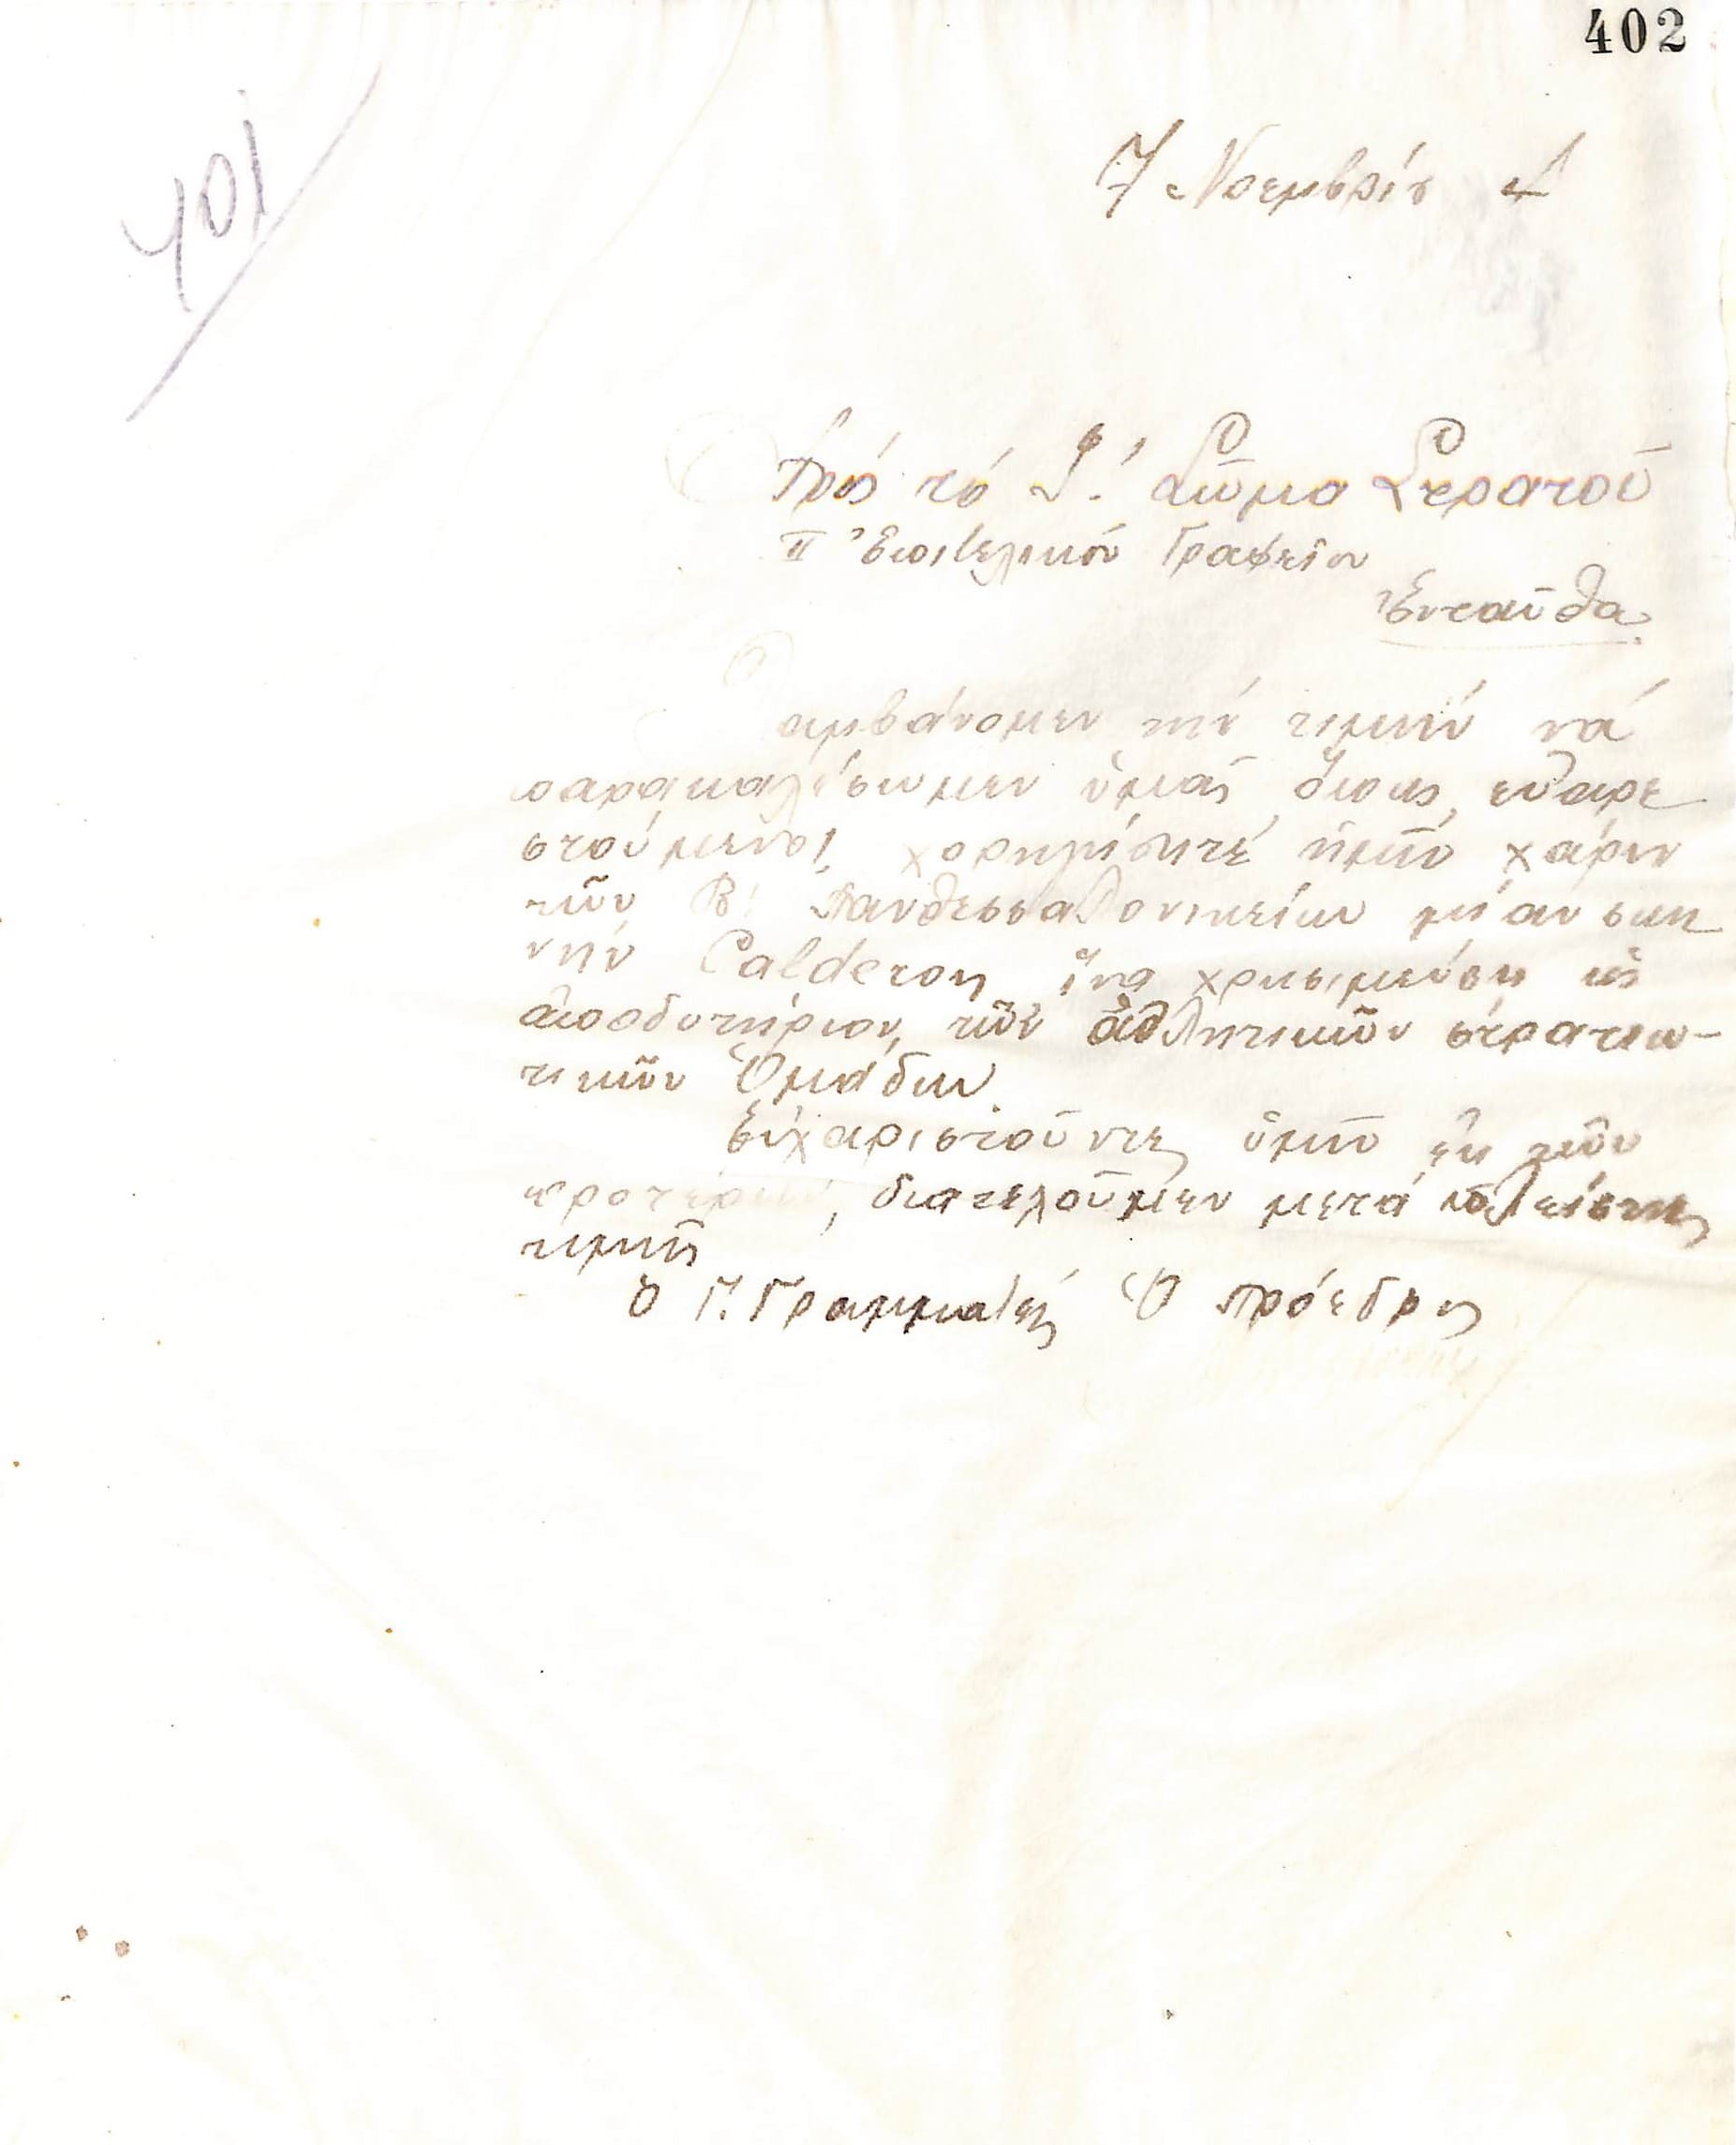 402
401
7 Νοεμβρίου
Πρός τό Γ΄. Σῶμα Στρατοῦ
II Ἐπιτελικόν Γραφεῖον
Ἐνταῦθα
Λαμβάνομεν τήν τιμήν νά
παρακαλέσωμεν ὑμᾶς ὅπως, εὐαρε
στούμενοι, χορηγήσητέ ἡμῖν χάριν
τῶν Β! Πανθεσσαλονικείων μίαν σκη
νήν Calderon ἵνα χρησιμεύσῃ ὡς
ἀποδυτήριον τῶν ἀθλητικῶν στρατιω-
τικῶν Ὁμάδων.
Εὐχαριστοῦντες ὑμῖν ἐκ τῶν
προτέρων, διατελοῦμεν μετά πλείστης
τιμῆς
Ὁ Γ. Γραμματεύς Ὁ Πρόεδρος